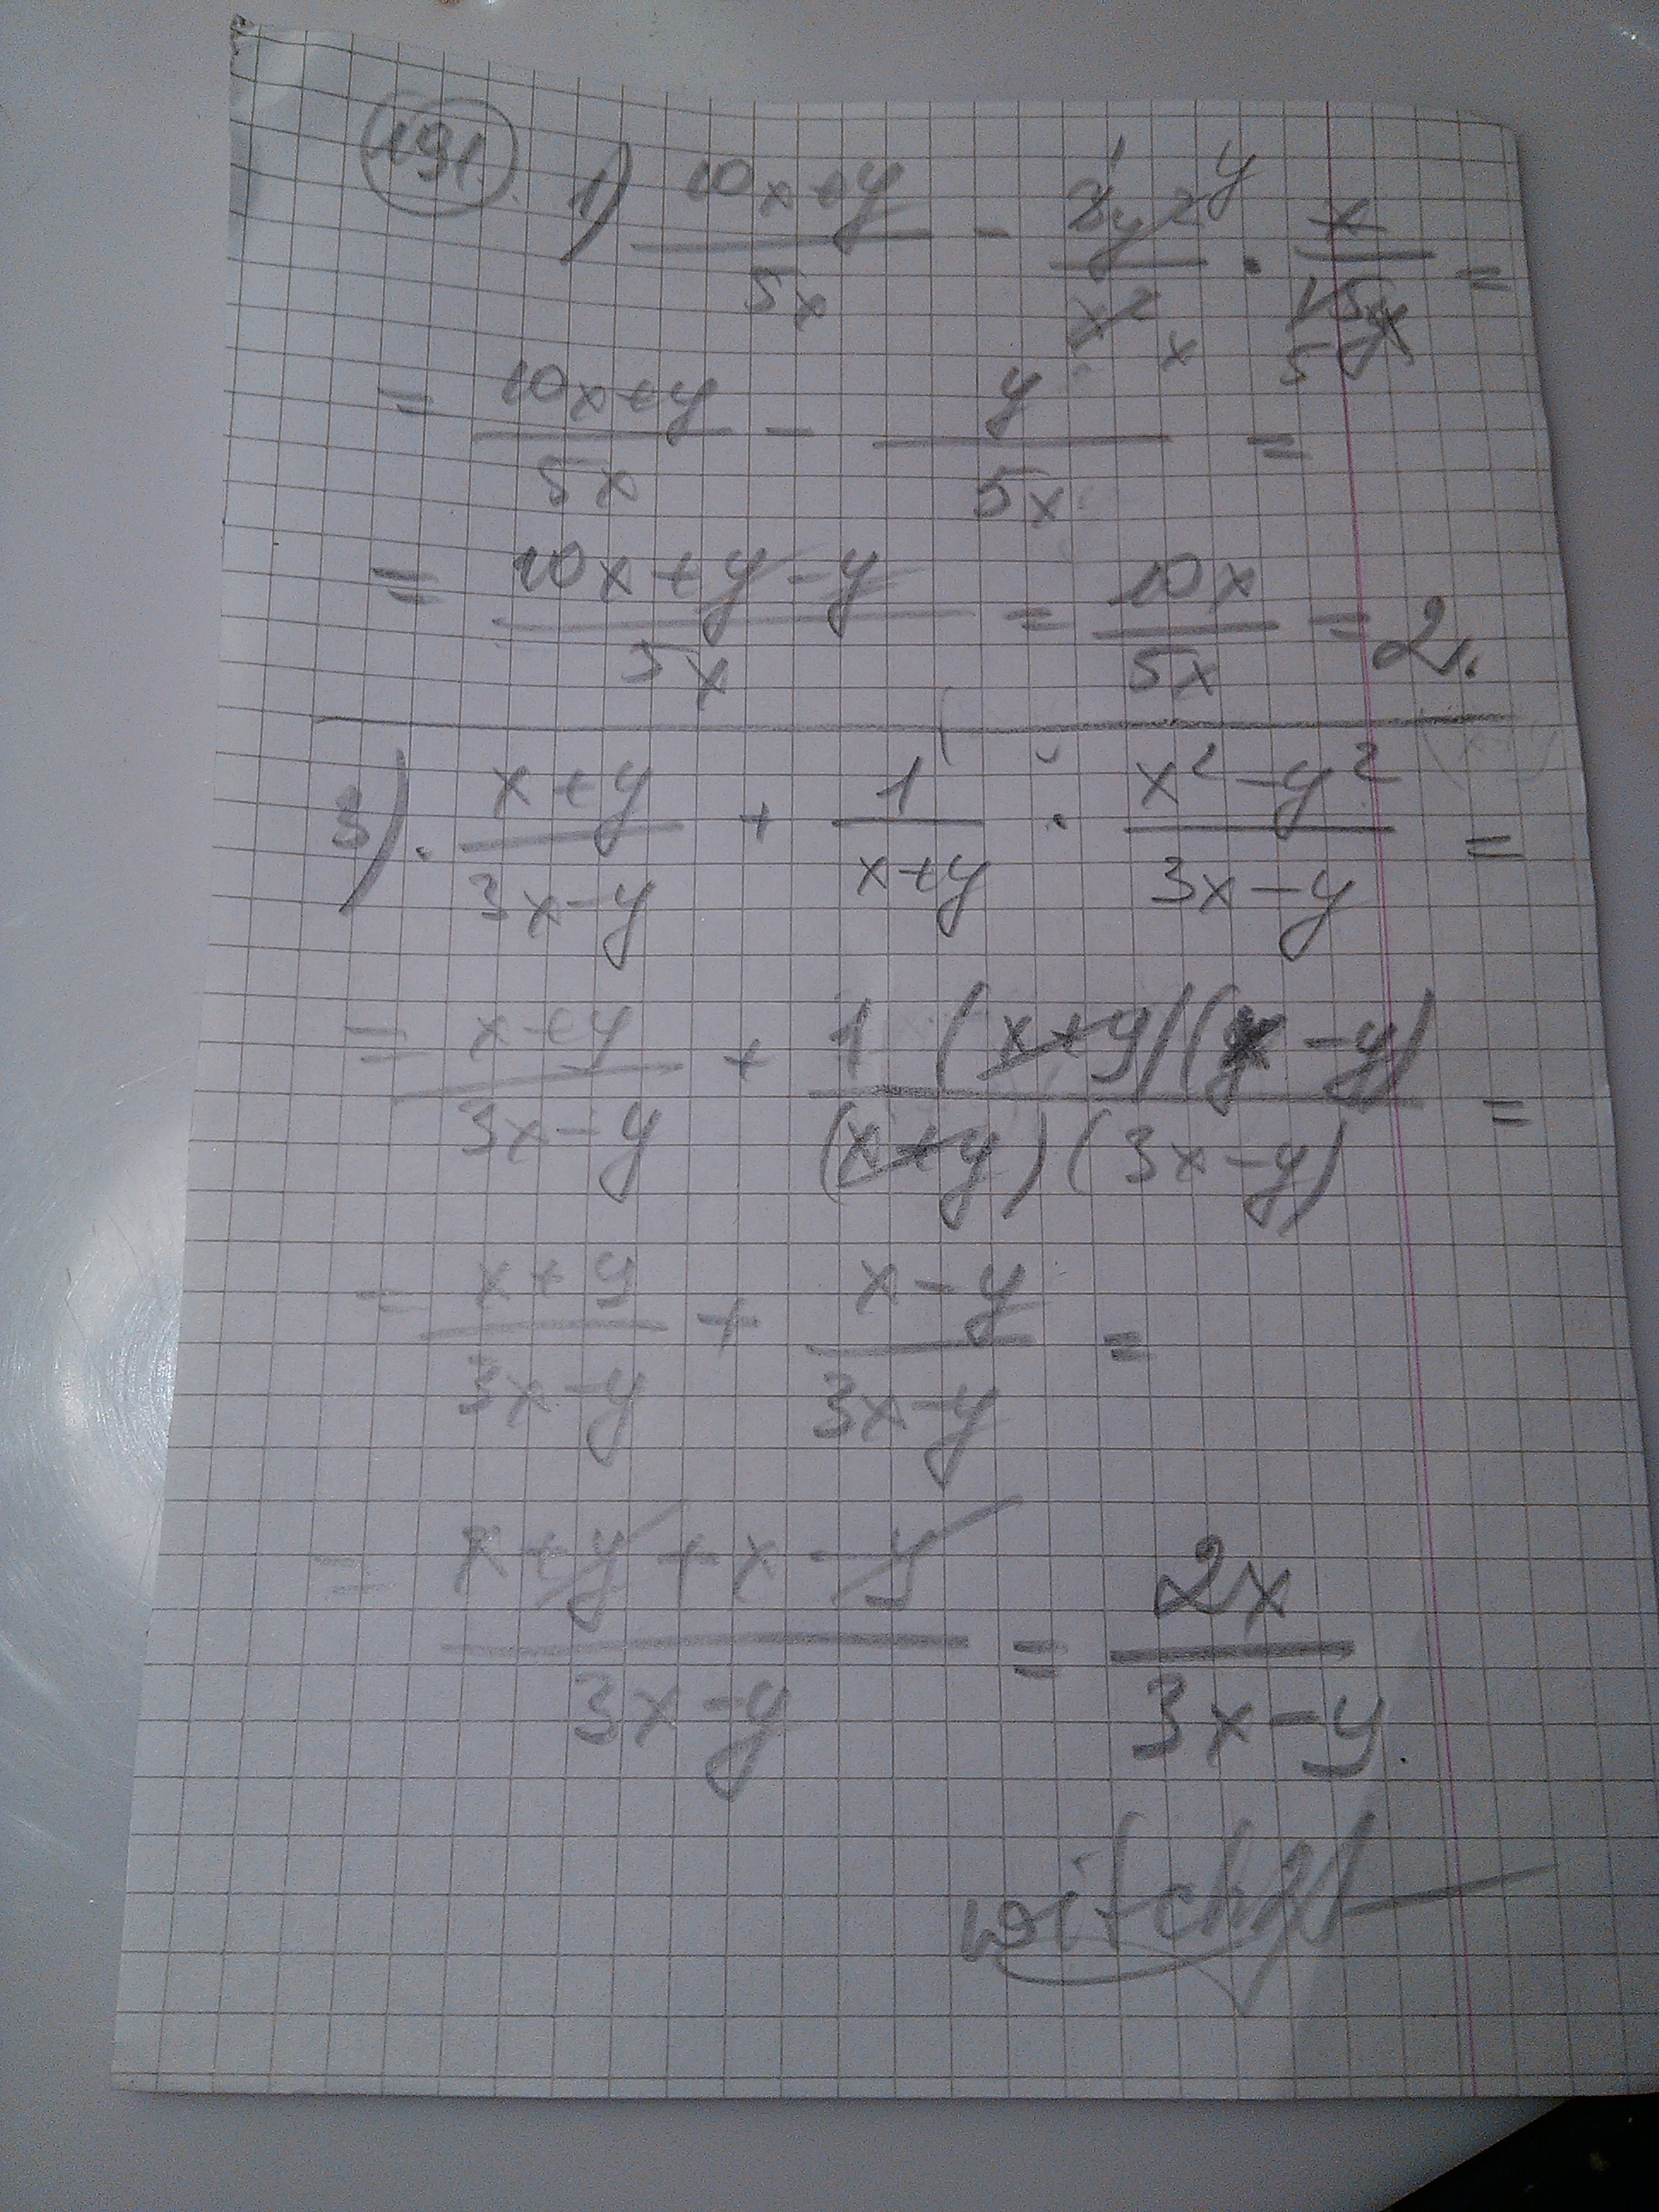 491. 1) (10x+y)/(5x) - (3y²)/(x²) · x/(15y) =
= (10x+y)/(5x) - y/(5x) =
= (10x+y-y)/(5x) = (10x)/(5x) = 2.
3). (x+y)/(3x-y) + 1/(x+y) · (x²-y²)/(3x-y) =
= (x+y)/(3x-y) + (1(x+y)(x-y))/((x+y)(3x-y)) =
= (x+y)/(3x-y) + (x-y)/(3x-y) =
= (x+y+x-y)/(3x-y) = (2x)/(3x-y).